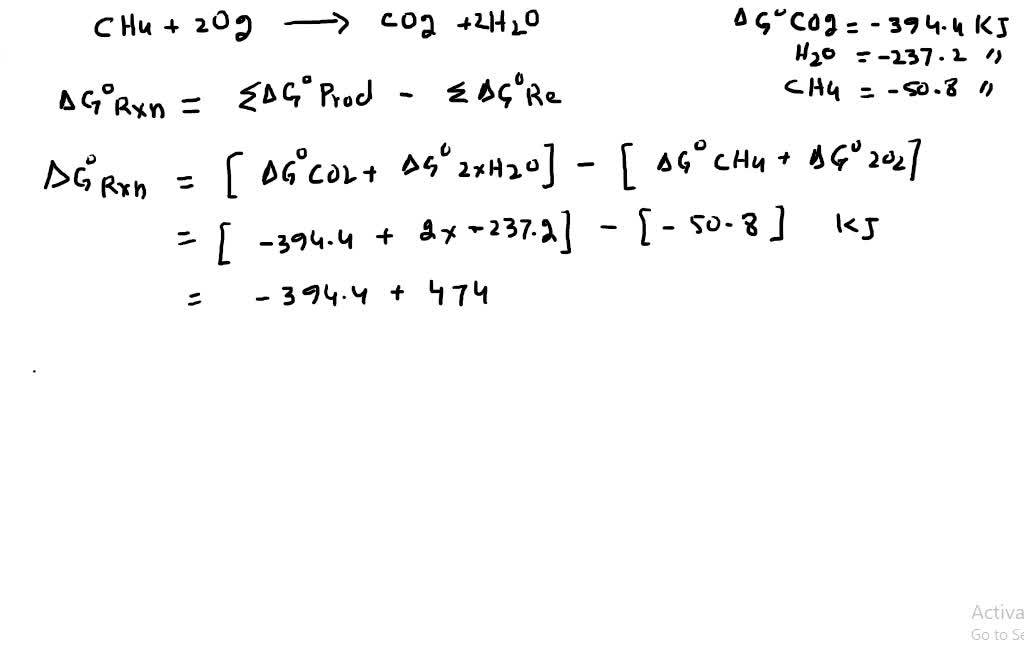 CH4 + 2O2 → CO2 + 2H2O
ΔG°CO2 = -394.4 KJ
H2O = -237.2 "
CH4 = -50.8 "
ΔG°Rxn = ΣΔG°Prod - ΣΔG°Re
ΔG°Rxn = [ΔG°CO2 + ΔG°2xH2O] - [ΔG°CH4 + ΔG°2O2]
= [-394.4 + 2x-237.2] - [-50.8] KJ
= -394.4 + 474
Activa
Go to Se